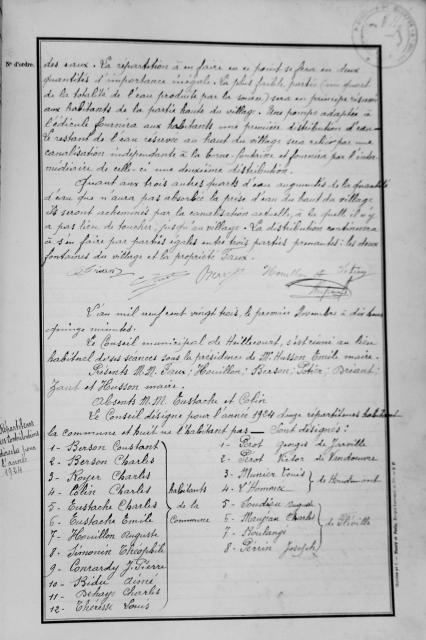 N° d'ordre.
des eaux. La répartition à en faire en ce point se fera en deux
quantités d'importance inégale. La plus faible partie (un quart
de la totalité de l'eau produite par la source) sera en principe réservée
aux habitants de la partie haute du village. Une pompe adaptée à
l'édicule fournira aux habitants une première distribution d'eau
Le restant de l'eau réservée au haut du village sera relié par une
canalisation indépendante à la borne-fontaine et fournira par l'inter-
médiaire de celle-ci une deuxième distribution.
Quant aux trois autres quarts d'eau augmentés de la quantité
d'eau que n'aura pas absorbée la prise d'eau du haut du village
ils seront acheminés par la canalisation actuelle, à laquelle il n'y
a pas lieu de toucher, jusqu'au village. La distribution continuera
à s'en faire par parties égales entre trois parties prenantes : les deux
fontaines du village et la propriété Faux.
Houillon
L'an mil neuf cent vingt trois, le premier Novembre à dix heures
quinze minutes.
Le Conseil municipal de Heillecourt, s'est réuni au lieu
habituel de ses séances sous la présidence de Mr Husson Emile maire.
Présents M.M. Faux ; Houillon ; Berson ; Briant ;
Zaut et Husson maire.
Absents M.M. Eustache et Colin
Le Conseil désigne pour l'année 1924 douze répartiteurs habitant
la commune et huit ne l'habitant pas — Sont désignés :
Répartiteurs
des Contributions
directes pour
l'année
1924
1 - Berson Constant
2 - Berson Charles
3 - Royer Charles
4 - Colin Charles
5 - Eustache Charles
6 - Eustache Emile
7 - Houillon Auguste
8 - Simonin Théophile
9 - Conrardy J. Pierre
10 - Bidu Aimé
11 - Dehaye Charles
12 - Thérèse Louis
habitants
de la
Commune
1 - Pérot Georges de Jarville
2 - Pérot Victor de Vandoeuvre
3 - Munier Louis
4 - L'Hommée
de Houdemont
5 - Toudieu
6 - Maugean Charles
7 - Boulangé
8 - Perrin Joseph
de Fléville